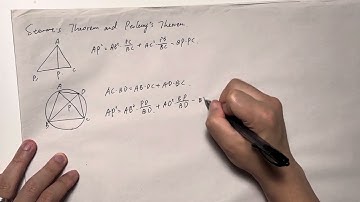 Stewart's Theorem and Ptolemy's Theorem
A
B P C
AP² = AB² · PC/BC + AC² · PB/BC − BP · PC.
A D
B C
AC · BD = AB · DC + AD · BC.
AP² = AB² · PD/BD + AD² · BP/BD −